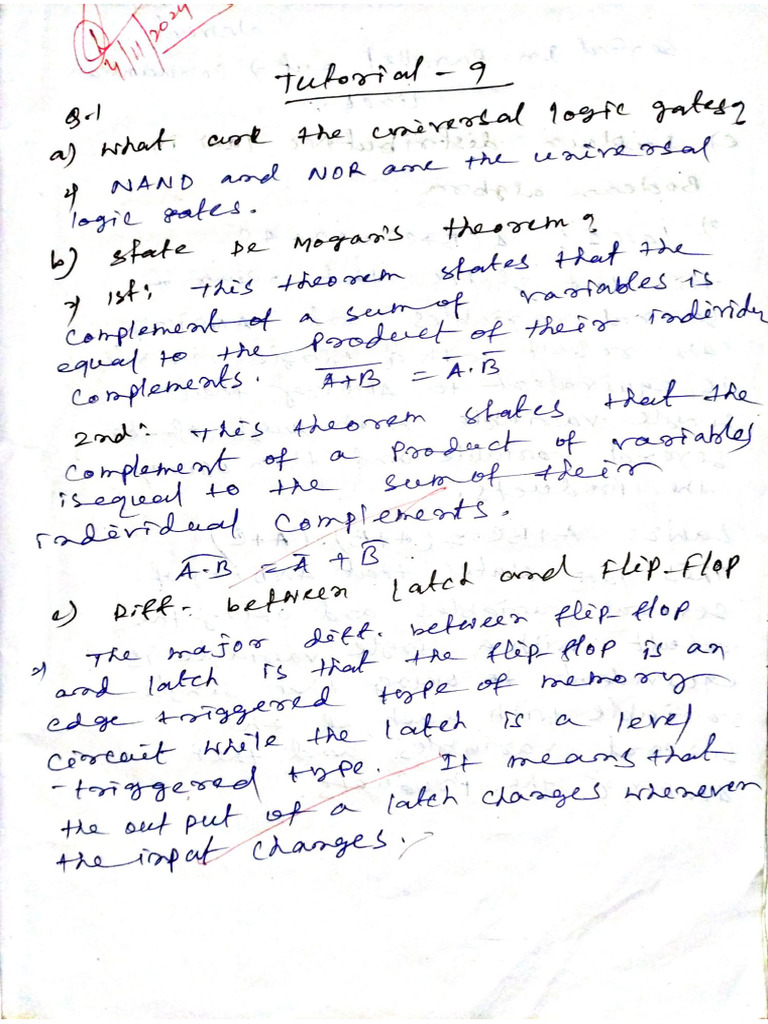 4/11/2024
Tutorial - 9
Q-1
a) What are the universal logic gates?
NAND and NOR are the universal
logic gates.
b) State De Mogan's theorem?
1st: This theorem states that the
complement of a sum of variables is
equal to the product of their individu
complements. A̅+̅B̅ = A̅.B̅
2nd: This theorem states that the
complement of a product of variables
is equal to the sum of their
individual complements.
A̅.̅B̅ = A̅ + B̅
c) Diff. between latch and flip-flop
The major diff. between flip-flop
and latch is that the flip-flop is an
edge triggered type of memory
circuit while the latch is a level
-triggered type. It means that
the out put of a latch changes whenever
the input changes.